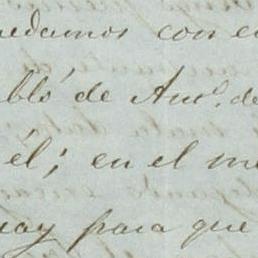 uedamos con e
abló de Ant.º de
él; en el me
uay para que